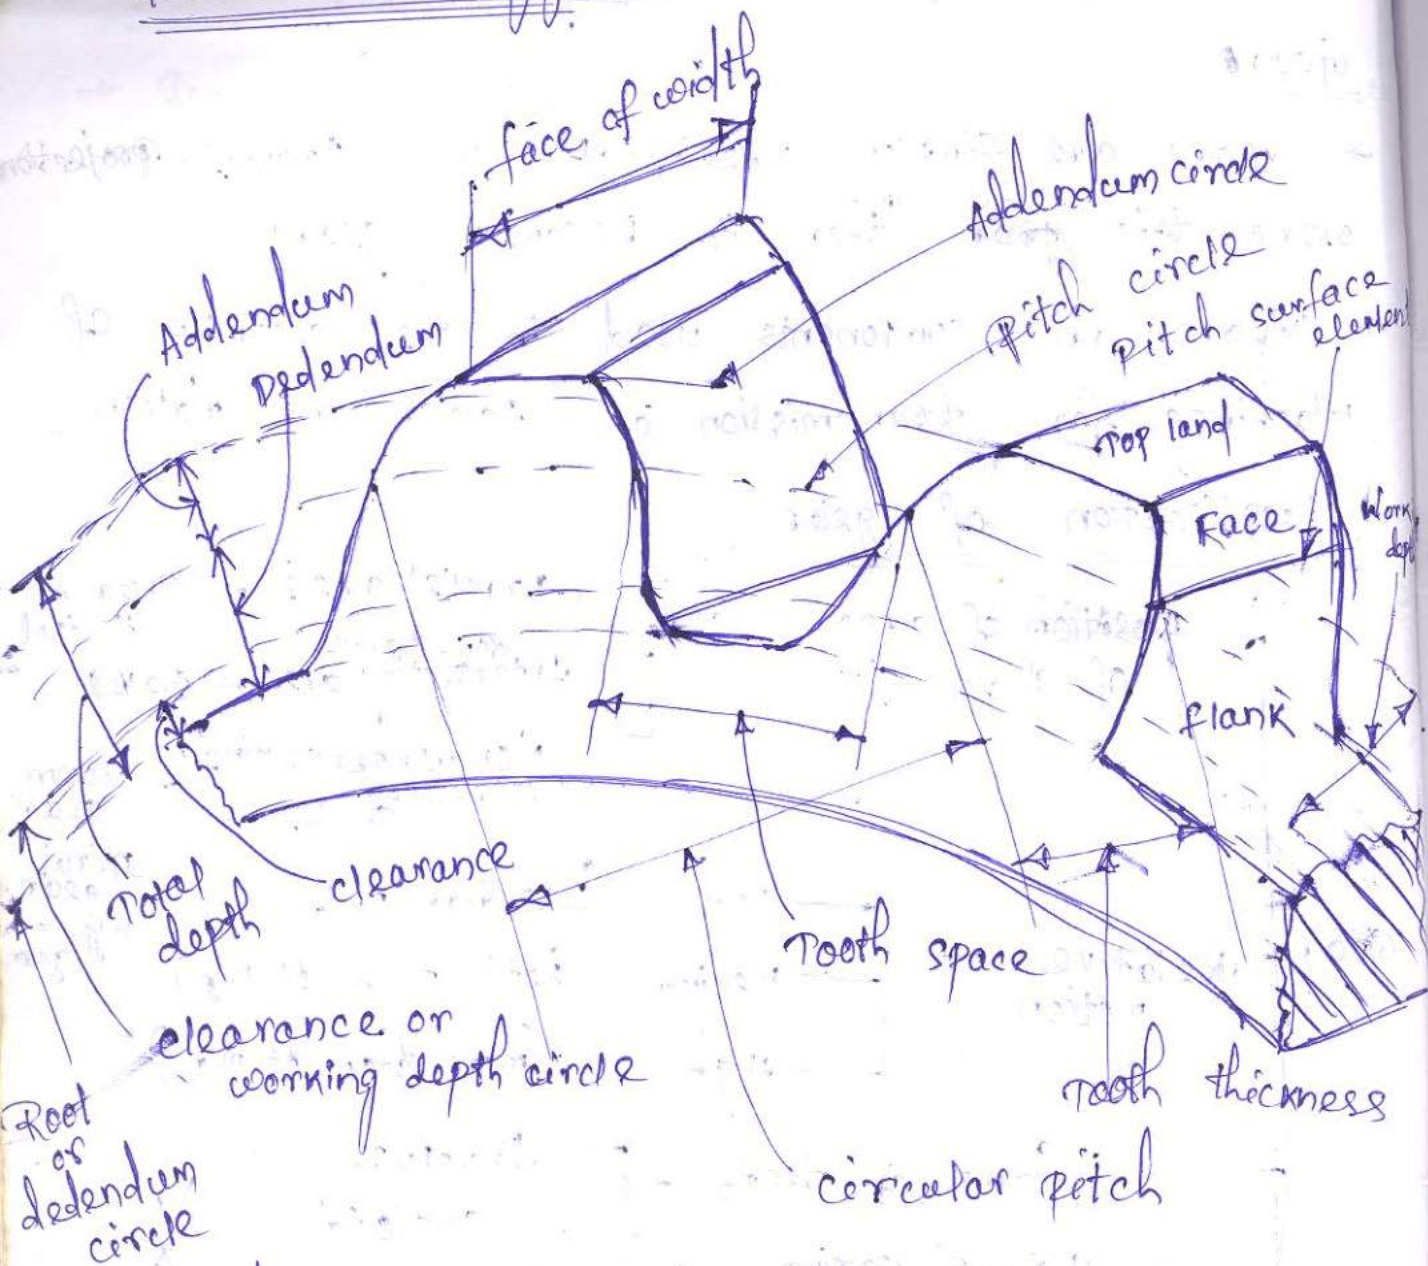 face of width
Addendum circle
pitch circle
pitch surface
element
Addendum
Dedendum
Top land
Face
flank
clearance
Total
depth
Tooth space
clearance or
working depth circle
Tooth thickness
Root
or
dedendum
circle
circular pitch